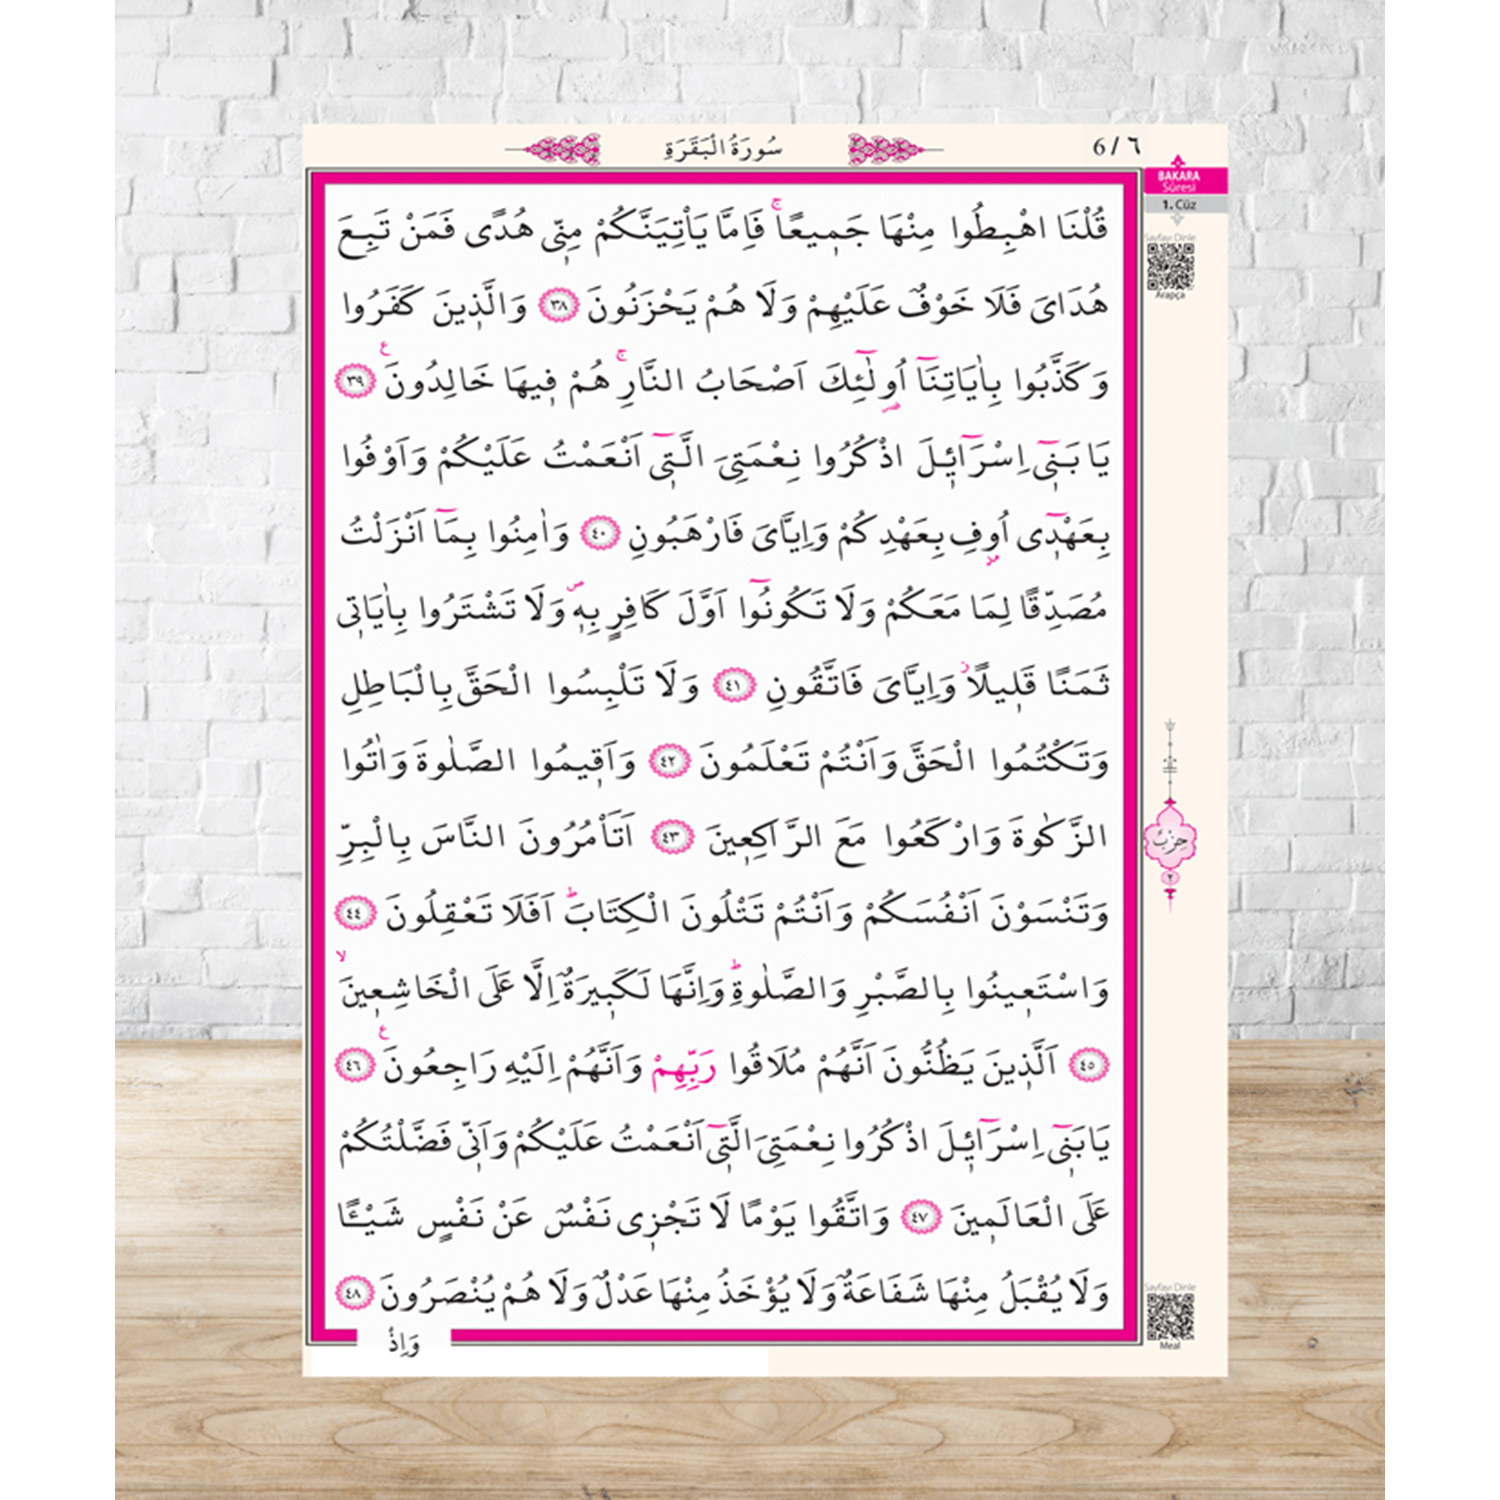 سُورَةُ الْبَقَرَةِ
6 / ٦
BAKARA
Sûresi
1. Cüz
Sayfayı Dinle
Arapça
قُلْنَا اهْبِطُوا مِنْهَا جَمٖيعًاۚ فَاِمَّا يَاْتِيَنَّكُمْ مِنّٖى هُدًى فَمَنْ تَبِعَ
هُدَاىَ فَلَا خَوْفٌ عَلَيْهِمْ وَلَا هُمْ يَحْزَنُونَ ﴿٣٨﴾ وَالَّذٖينَ كَفَرُوا
وَكَذَّبُوا بِاٰيَاتِنَٓا اُو۬لٰٓئِكَ اَصْحَابُ النَّارِۚ هُمْ فٖيهَا خَالِدُونَ ﴿٣٩﴾ ع
يَا بَنٖٓى اِسْرَٓائٖلَ اذْكُرُوا نِعْمَتِىَ الَّتٖٓى اَنْعَمْتُ عَلَيْكُمْ وَاَوْفُوا
بِعَهْدٖٓى اُو۫فِ بِعَهْدِكُمْ وَاِيَّاىَ فَارْهَبُونِ ﴿٤٠﴾ وَاٰمِنُوا بِمَٓا اَنْزَلْتُ
مُصَدِّقًا لِمَا مَعَكُمْ وَلَا تَكُونُٓوا اَوَّلَ كَافِرٍ بِهٖۖ وَلَا تَشْتَرُوا بِاٰيَاتٖى
ثَمَنًا قَلٖيلًاؗ وَاِيَّاىَ فَاتَّقُونِ ﴿٤١﴾ وَلَا تَلْبِسُوا الْحَقَّ بِالْبَاطِلِ
وَتَكْتُمُوا الْحَقَّ وَاَنْتُمْ تَعْلَمُونَ ﴿٤٢﴾ وَاَقٖيمُوا الصَّلٰوةَ وَاٰتُوا
الزَّكٰوةَ وَارْكَعُوا مَعَ الرَّاكِعٖينَ ﴿٤٣﴾ اَتَاْمُرُونَ النَّاسَ بِالْبِرِّ
وَتَنْسَوْنَ اَنْفُسَكُمْ وَاَنْتُمْ تَتْلُونَ الْكِتَابَؕ اَفَلَا تَعْقِلُونَ ﴿٤٤﴾
وَاسْتَعٖينُوا بِالصَّبْرِ وَالصَّلٰوةِؕ وَاِنَّهَا لَكَبٖيرَةٌ اِلَّا عَلَى الْخَاشِعٖينَۙ
﴿٤٥﴾ اَلَّذٖينَ يَظُنُّونَ اَنَّهُمْ مُلَاقُوا رَبِّهِمْ وَاَنَّهُمْ اِلَيْهِ رَاجِعُونَ ﴿٤٦﴾ ع
يَا بَنٖٓى اِسْرَٓائٖلَ اذْكُرُوا نِعْمَتِىَ الَّتٖٓى اَنْعَمْتُ عَلَيْكُمْ وَاَنّٖى فَضَّلْتُكُمْ
عَلَى الْعَالَمٖينَ ﴿٤٧﴾ وَاتَّقُوا يَوْمًا لَا تَجْزٖى نَفْسٌ عَنْ نَفْسٍ شَيْـًٔا
وَلَا يُقْبَلُ مِنْهَا شَفَاعَةٌ وَلَا يُؤْخَذُ مِنْهَا عَدْلٌ وَلَا هُمْ يُنْصَرُونَ ﴿٤٨﴾
حِزْبٌ
٢
Sayfayı Dinle
Meal
وَاِذْ